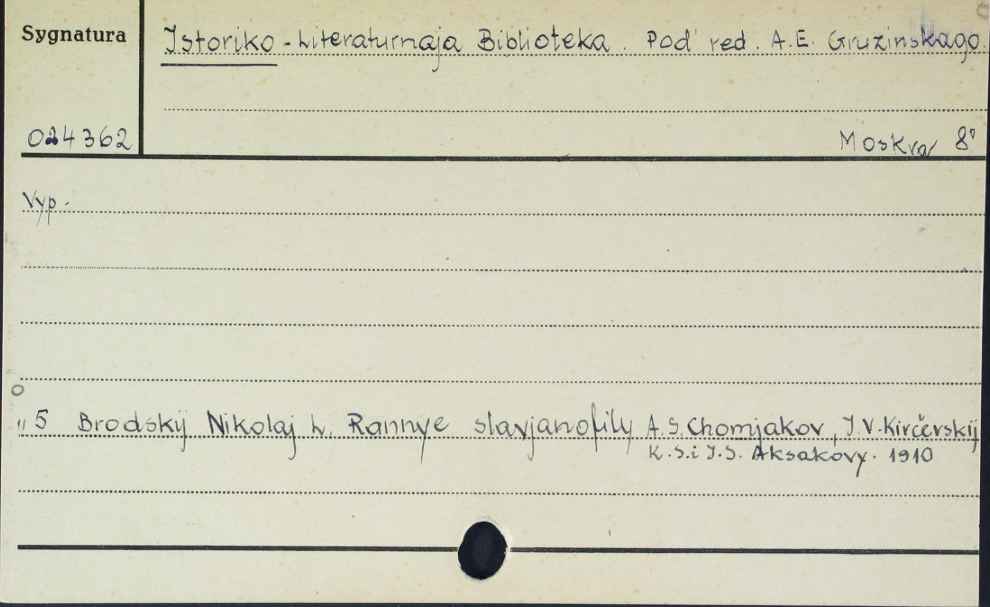 Sygnatura
Istoriko-Literaturnaja Biblioteka. Pod red. A.E. Gruzinskago.
024362
Moskva 8°
Vyp.
" 5 Brodskij Nikolaj L. Rannye slavjanofily A.S. Chomjakov, I.V. Kirěevskij
K.S. i I.S. Aksakovy. 1910